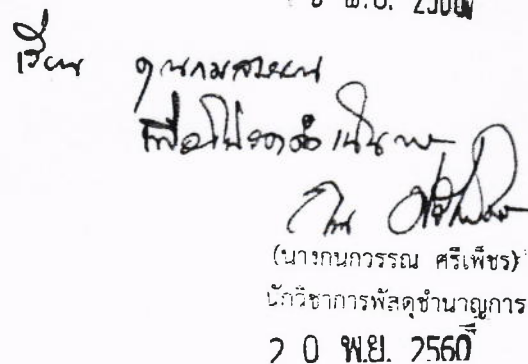 พ.ย. 2560
เรียน คุณกมลวรรณ
เพื่อโปรดดำเนินการ
(นางกนกวรรณ ศรีเพ็ชร)
นักวิชาการพัสดุชำนาญการ
2 0 พ.ย. 2560